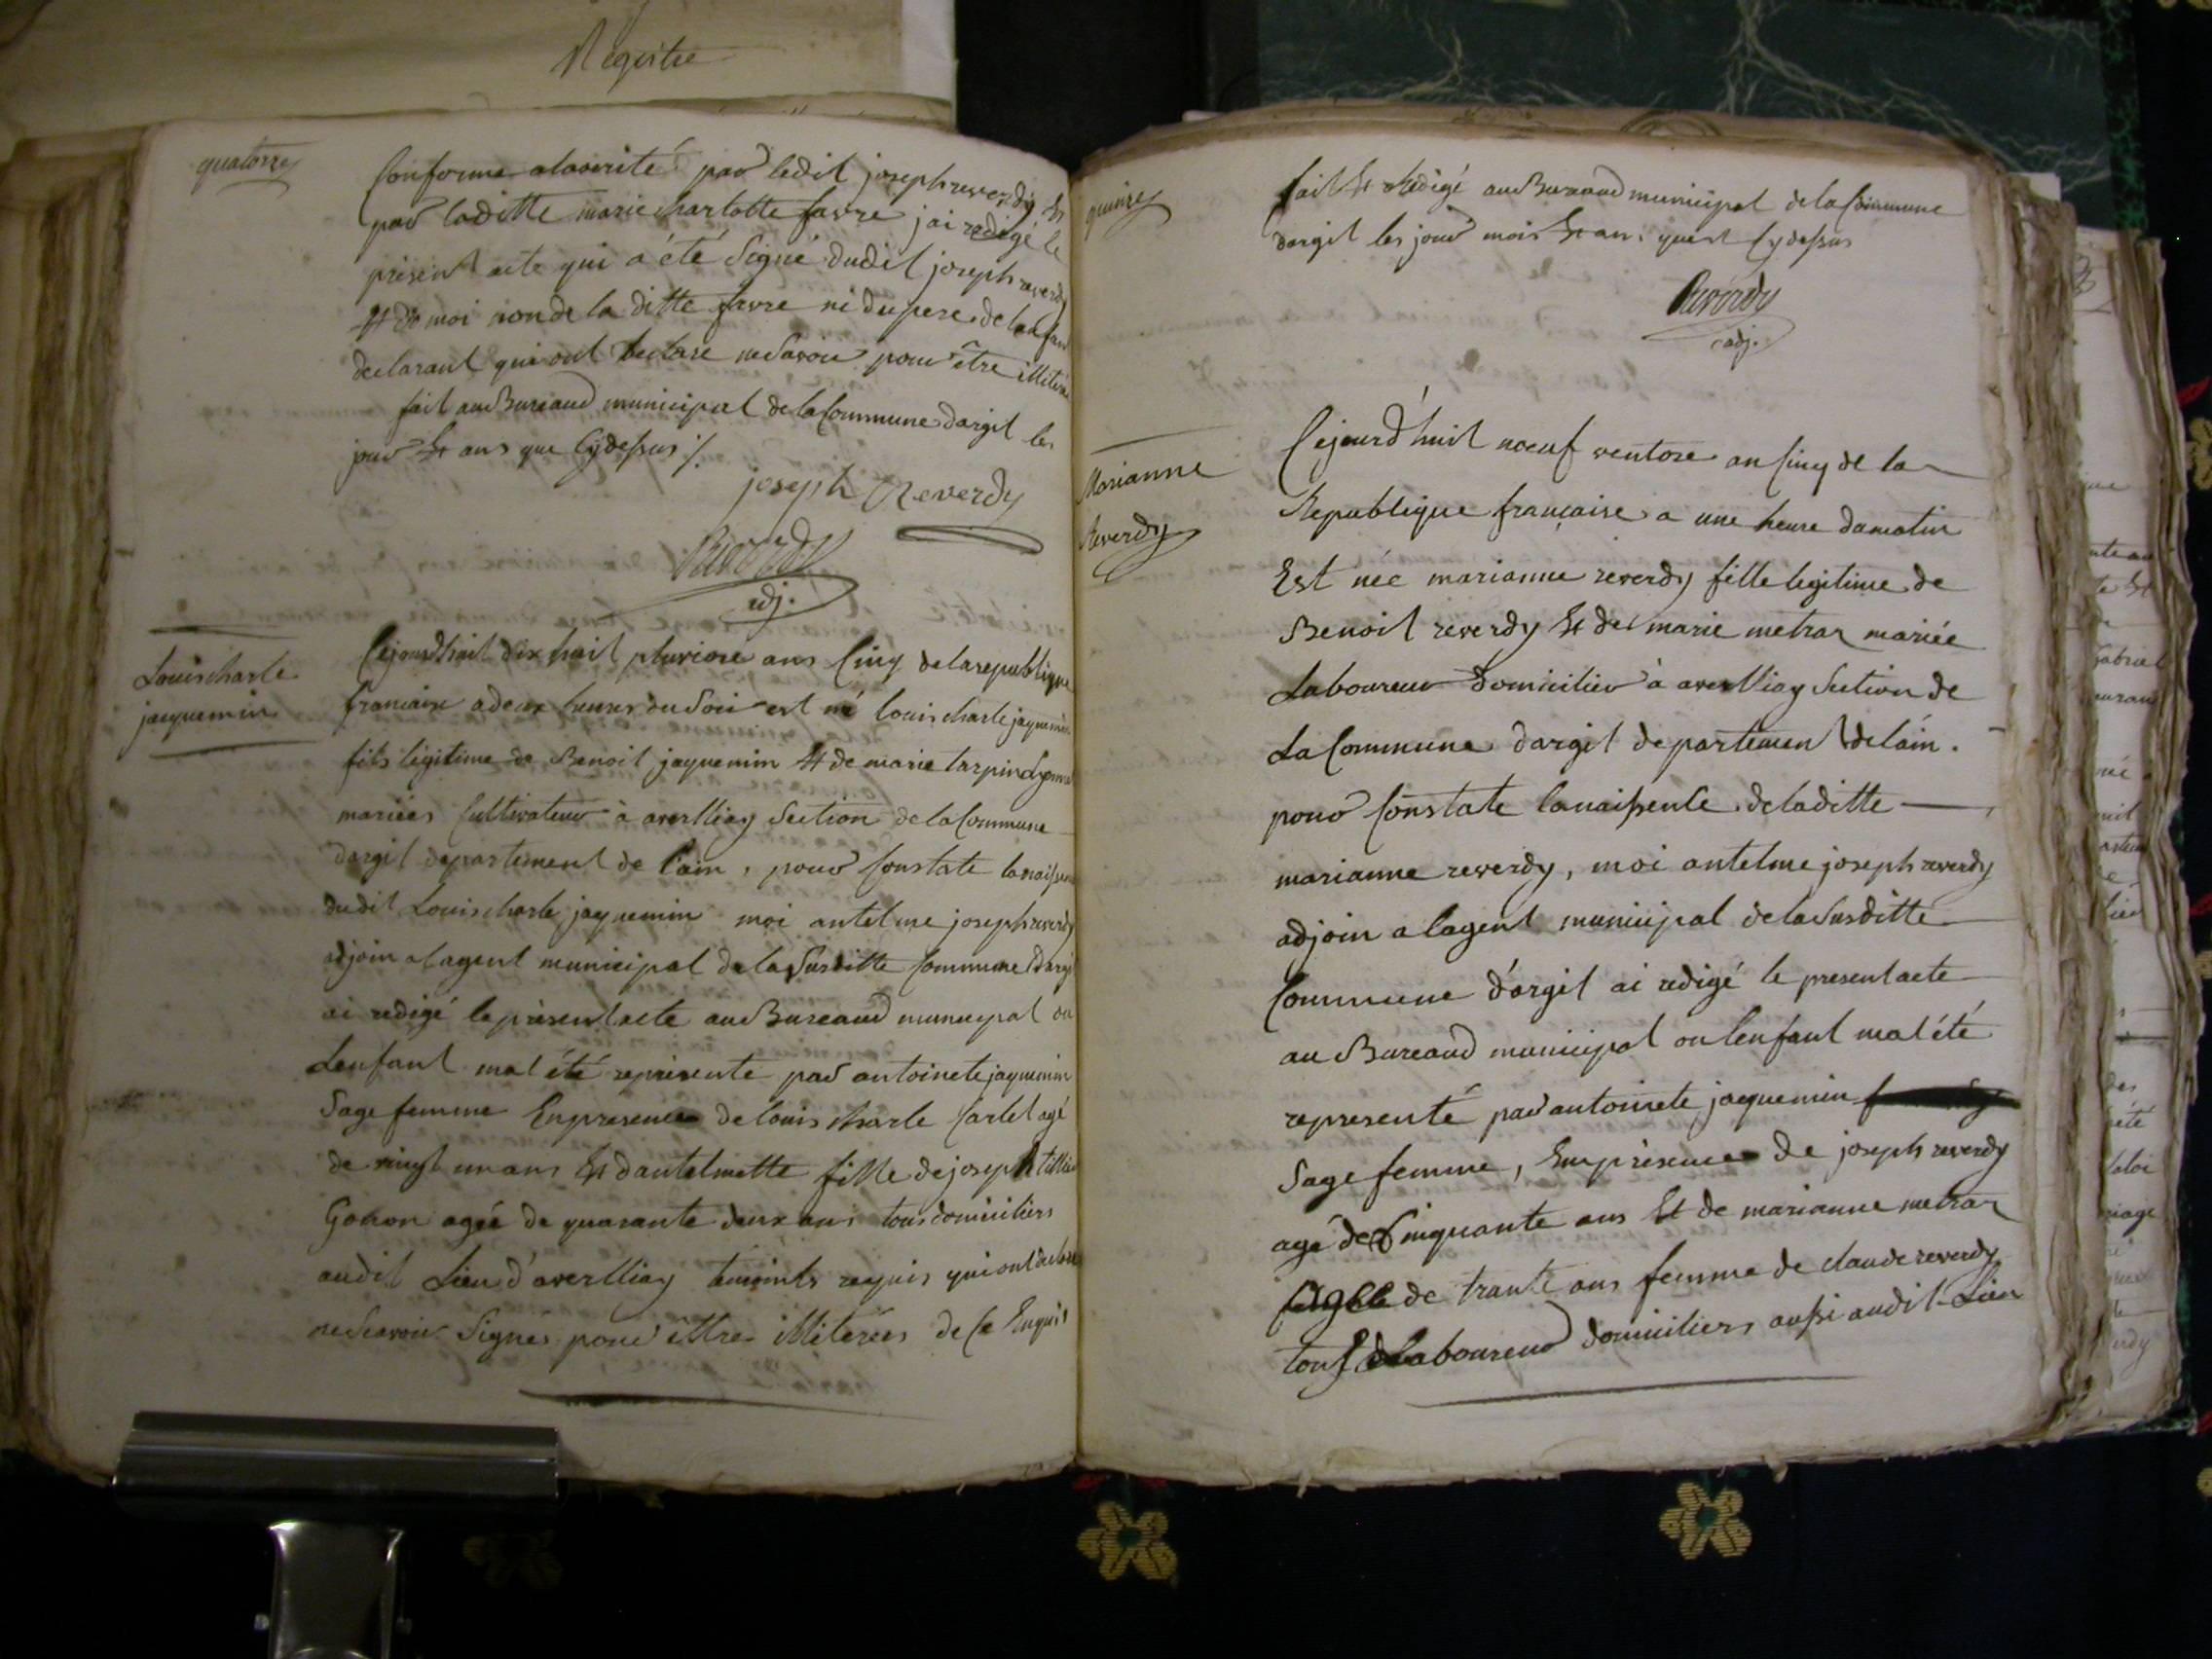 Registre
quatorze
Conforme alaverité par ledit joseph reverdy Et
par laditte marie charlotte favre jai redigé le
présent acte qui a été Signé dudit joseph reverdy
Et de moi non de la ditte favre ni du pere de
declarant qui ont declare ne Savoir pour être
fait au Bureaud municipal de la Commune dargit les
jour Et ans que Cydessus ./.
joseph Reverdy
Reverdy
adj.
Louis charle
jaquemin
Cejourdhuit dix huit pluviose ans Cinq de la republique
francaise a deux heures du Soir est né louis charle jaquemin
fils légitime de Benoit jaquemin Et de marie
mariées Cultivateur à averlliay Section de la Commune
dargit departement de l'ain, pour Constate
dudit Louis charle jaquemin moi antelme joseph reverdy
adjoin a lagent municipal de la Susditte Commune dargit
ai redigé le présent acte au Bureaud municipal ou
Lenfant mat été représenté par antoinete jaquemin
Sage femme En presence de louis charle Carlet agé
de vingt un ans Et dantelmette fille de joseph
Gonon agée de quarante deux ans tous domiciliers
audit Lieu d'averlliay temoints requis qui ont declare
ne Scavoir Signés pour êttre illiterées de Ce Enquis
quinze
fait Et Redigé au Bureaud municipal de la Commune
dargit les jour mois Et ans quest Cydessus
Reverdy
adj.
Marianne
Reverdy
Cejourd'huit nœuf ventose an Cinq de la
Republique française a une heure du matin
Est née marianne reverdy fille legitime de
Benoit reverdy Et de marie metraz mariée
Laboureur domicilier à averlliay Section de
La Commune dargit departement de lain.
pour Constate la naissence de laditte
marianne reverdy, moi antelme joseph reverdy
adjoin a lagent municipal de la Susditte
Commune d'argit ai redigé le present acte
au Bureaud municipal ou lenfant mat été
representé par antoinete jaquemin
Sage femme, En présence de joseph reverdy
agé de Cinquante ans Et de marianne metraz
de trante ans femme de claude reverdy
tous Laboureur domiciliers aussi audit Lieu